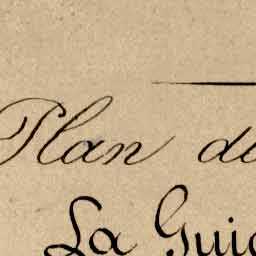 Plan de
La Guic